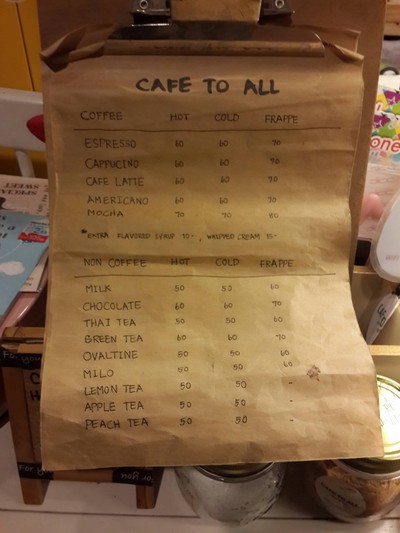 CAFE TO ALL
COFFEE HOT COLD FRAPPE
ESPRESSO 60 60 70
CAPPUCINO 60 60 70
CAFE LATTE 60 60 70
AMERICANO 60 60 70
MOCHA 70 70 80
*EXTRA FLAVORED SYRUP 10-, WHIPPED CREAM 15-
NON COFFEE HOT COLD FRAPPE
MILK 50 50 60
CHOCOLATE 60 60 70
THAI TEA 50 50 60
GREEN TEA 60 60 70
OVALTINE 50 50 60
MILO 50 50 60
LEMON TEA 50 50 -
APPLE TEA 50 50 -
PEACH TEA 50 50
SPECIAL
SWEET
one